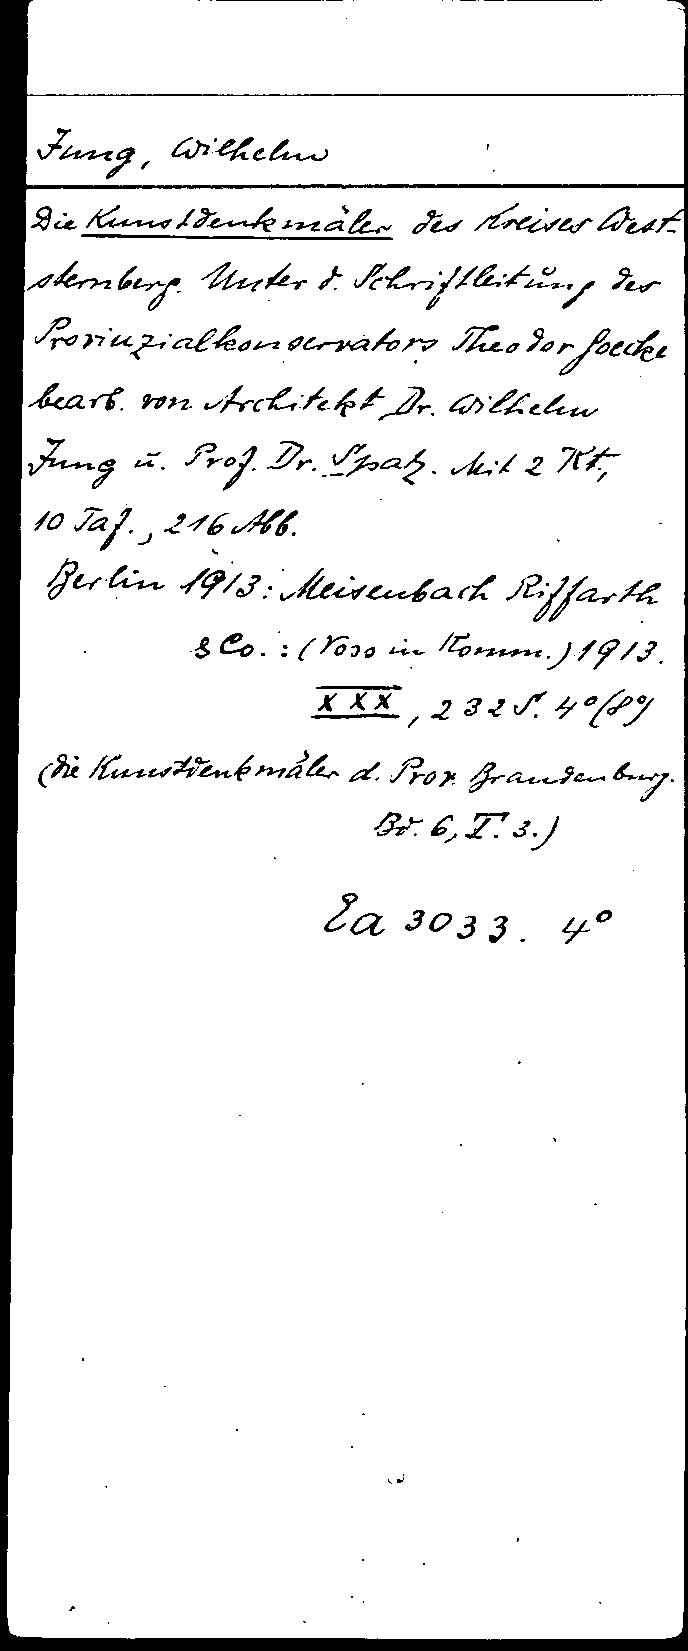 Jung, Wilhelm
Die Kunstdenkmäler des Kreises West-
sternberg. Unter d. Schriftleitung des
Provinzialkonservators Theodor Goecke
bearb. von Architekt Dr. Wilhelm
Jung u. Prof. Dr. Spatz. Mit 2 Kt.,
10 Taf., 216 Abb.
Berlin 1913: Meisenbach Riffarth
& Co. : (Voss in Komm.) 1913.
XXX, 232 S. 4° (8°)
(Die Kunstdenkmäler d. Prov. Brandenburg.
Bd. 6, T. 3.)
Ea 3033. 4°